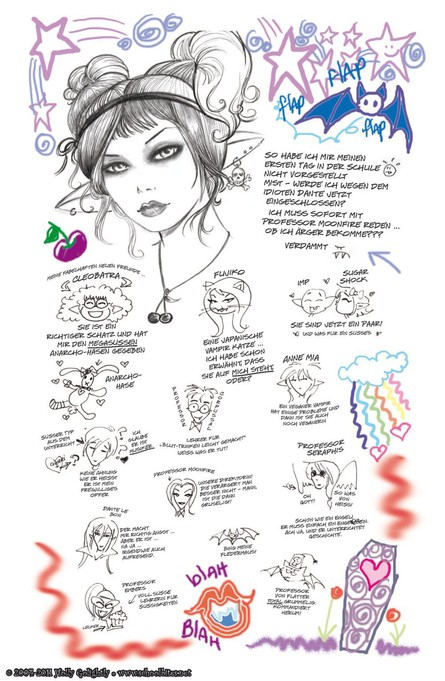 flap
flap
flap
SO HABE ICH MIR MEINEN
ERSTEN TAG IN DER SCHULE
NICHT VORGESTELLT
MIST - WERDE ICH WEGEN DEM
IDIOTEN DANTE JETZT
EINGESCHLOSSEN?
ICH MUSS SOFORT MIT
PROFESSOR MOONFIRE REDEN ...
OB ICH ÄRGER BEKOMME???
VERDAMMT
MEINE FABELHAFTEN NEUEN FREUNDE ...
CLEOBATRA
SIE IST EIN
RICHTIGER SCHATZ UND HAT
MIR DEN MEGASÜSSEN
ANARCHO-HASEN GEGEBEN
FUJIKO
EINE JAPANISCHE
VAMPIR KATZE ...
ICH HABE SCHON
ERWÄHNT, DASS
SIE AUF MICH STEHT
ODER?
IMP
SUGAR
SHOCK
SIE SIND JETZT EIN PAAR!
UND WAS FÜR EIN SÜSSES
ANARCHO-
HASE
LEHRER FÜR
„BLUT-TRINKEN LEICHT GEMACHT“
WEISS WAS ER TUT!
ANNE MIA
EIN VEGANER VAMPIR
HAT EINIGE PROBLEME UND
DANN IST SIE AUCH
NOCH VEGANERIN
SÜSSER TYP
AUS DEM
UNTERRICHT
ICH
GLAUBE
ER IST
KEINE AHNUNG
WIE ER HEISST
ER IST MEIN
FREIWILLIGES
OPFER
PROFESSOR MOONFIRE
UNSERE DIREKTORIN!
DIE VERÄRGERT MAN
BESSER NICHT - MANN,
IST DIE DANN
GRUSELIG!
PROFESSOR
SERAPHIS
OH
GOTT!
SO WAS
VON
HEISS!
SCHON WIE EIN ENGEL!
ER MUSS EINFACH EIN ENGEL
ACH JA, UND ER UNTERRICHTET
GESCHICHTE.
DANTE LE
BON
DER MACHT
MIR RICHTIG ANGST ...
ABER ER IST ...
NA JA ...
IRGENDWIE AUCH
AUFREGEND.
BING MEINE
FLEDERMAUS!
PROFESSOR
EMBERS
VOLL SÜSSE
LEHRERIN FÜR
SÜSSIGKEITEN
blAH
BLAH
PROFESSOR
VON FLATTER
TOTAL GRUMMELIG.
KOMMANDIERT
HERUM!
© 2005-2011 Holly Golightly - www.schoolbites.net